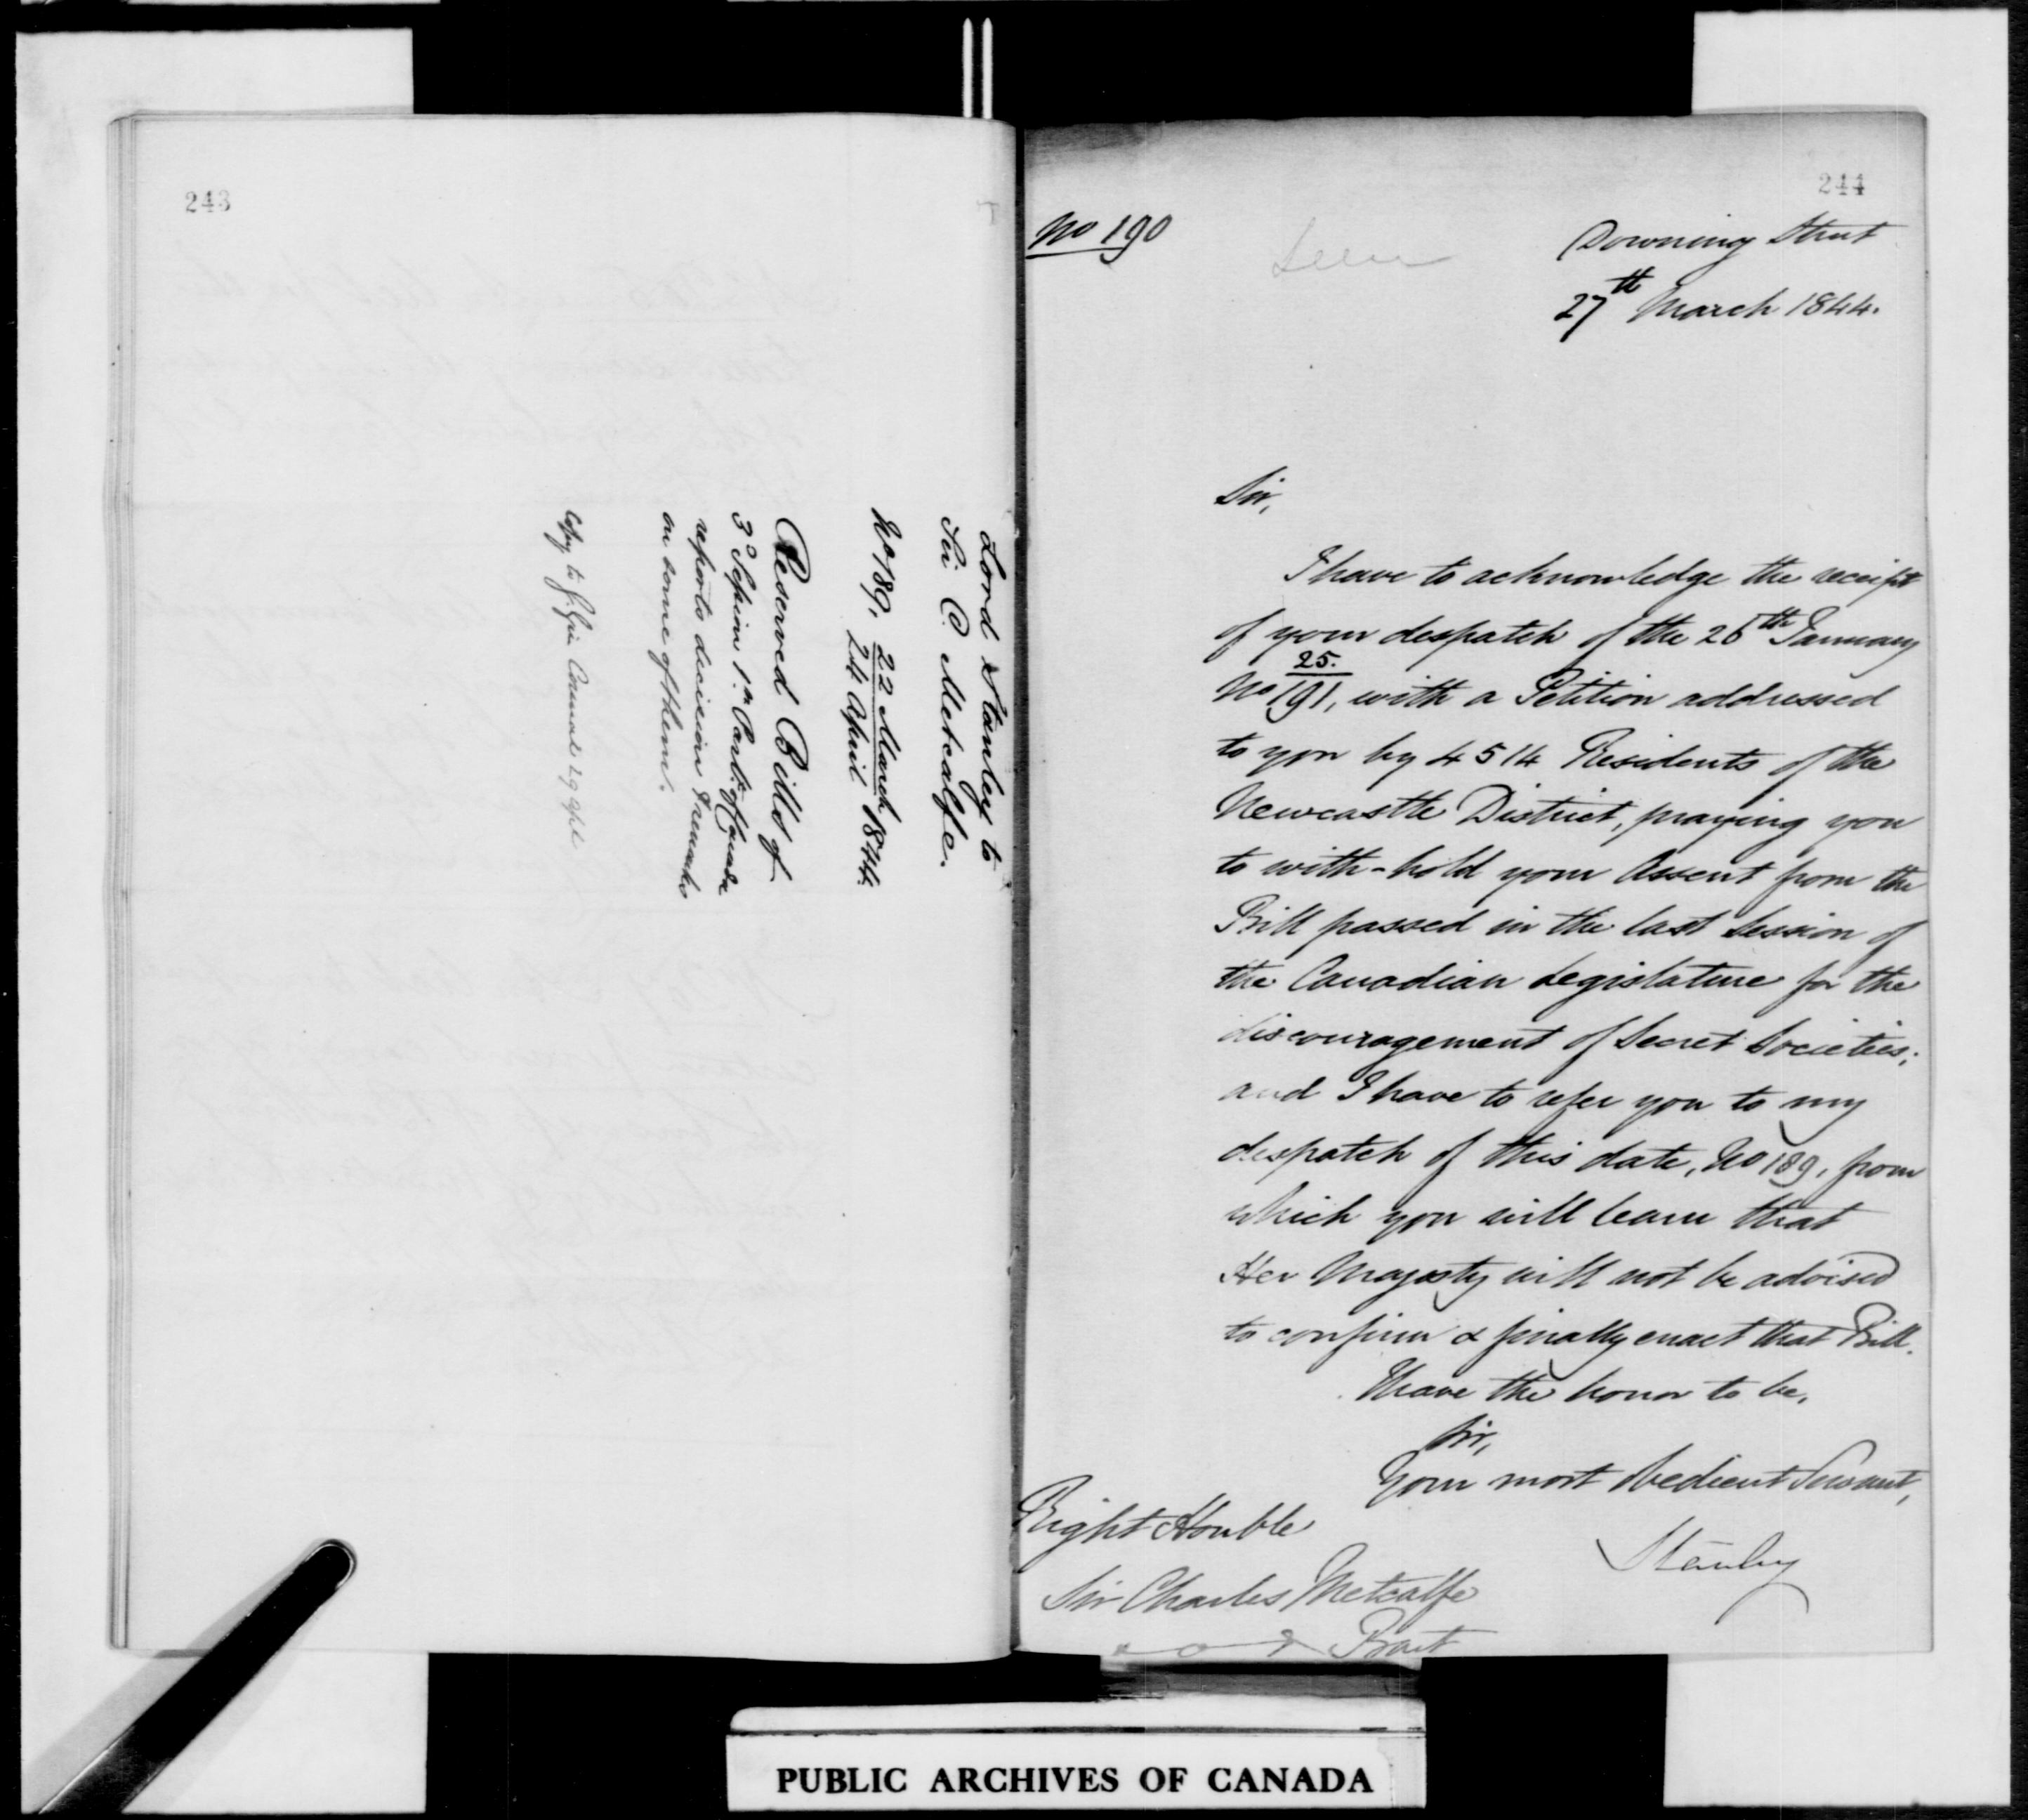 243
Lord Stanley to
Sir C. Metcalfe.
No 189, 22 March
24 April 1844.
Reserved Bills of
3d Session 1st Parlt of Canada
reports decision & remarks
on some of them.
Copy to
244
No 190
Seen
Downing Street
27th March 1844.
Sir,
I have to acknowledge the receipt
of your despatch of the 26th January
25.
No 191, with a Petition addressed
to you by 4514 Residents of the
Newcastle District, praying you
to with-hold your Assent from the
Bill passed in the last Session of
the Canadian Legislature for the
discouragement of Secret Societies;
and I have to refer you to my
despatch of this date, No 189, from
which you will learn that
Her Majesty will not be advised
to confirm & finally enact that Bill.
I have the honor to be,
Sir,
Your most obedient Servant,
Stanley
Right Honble
Sir Charles Metcalfe
Bart
PUBLIC ARCHIVES OF CANADA